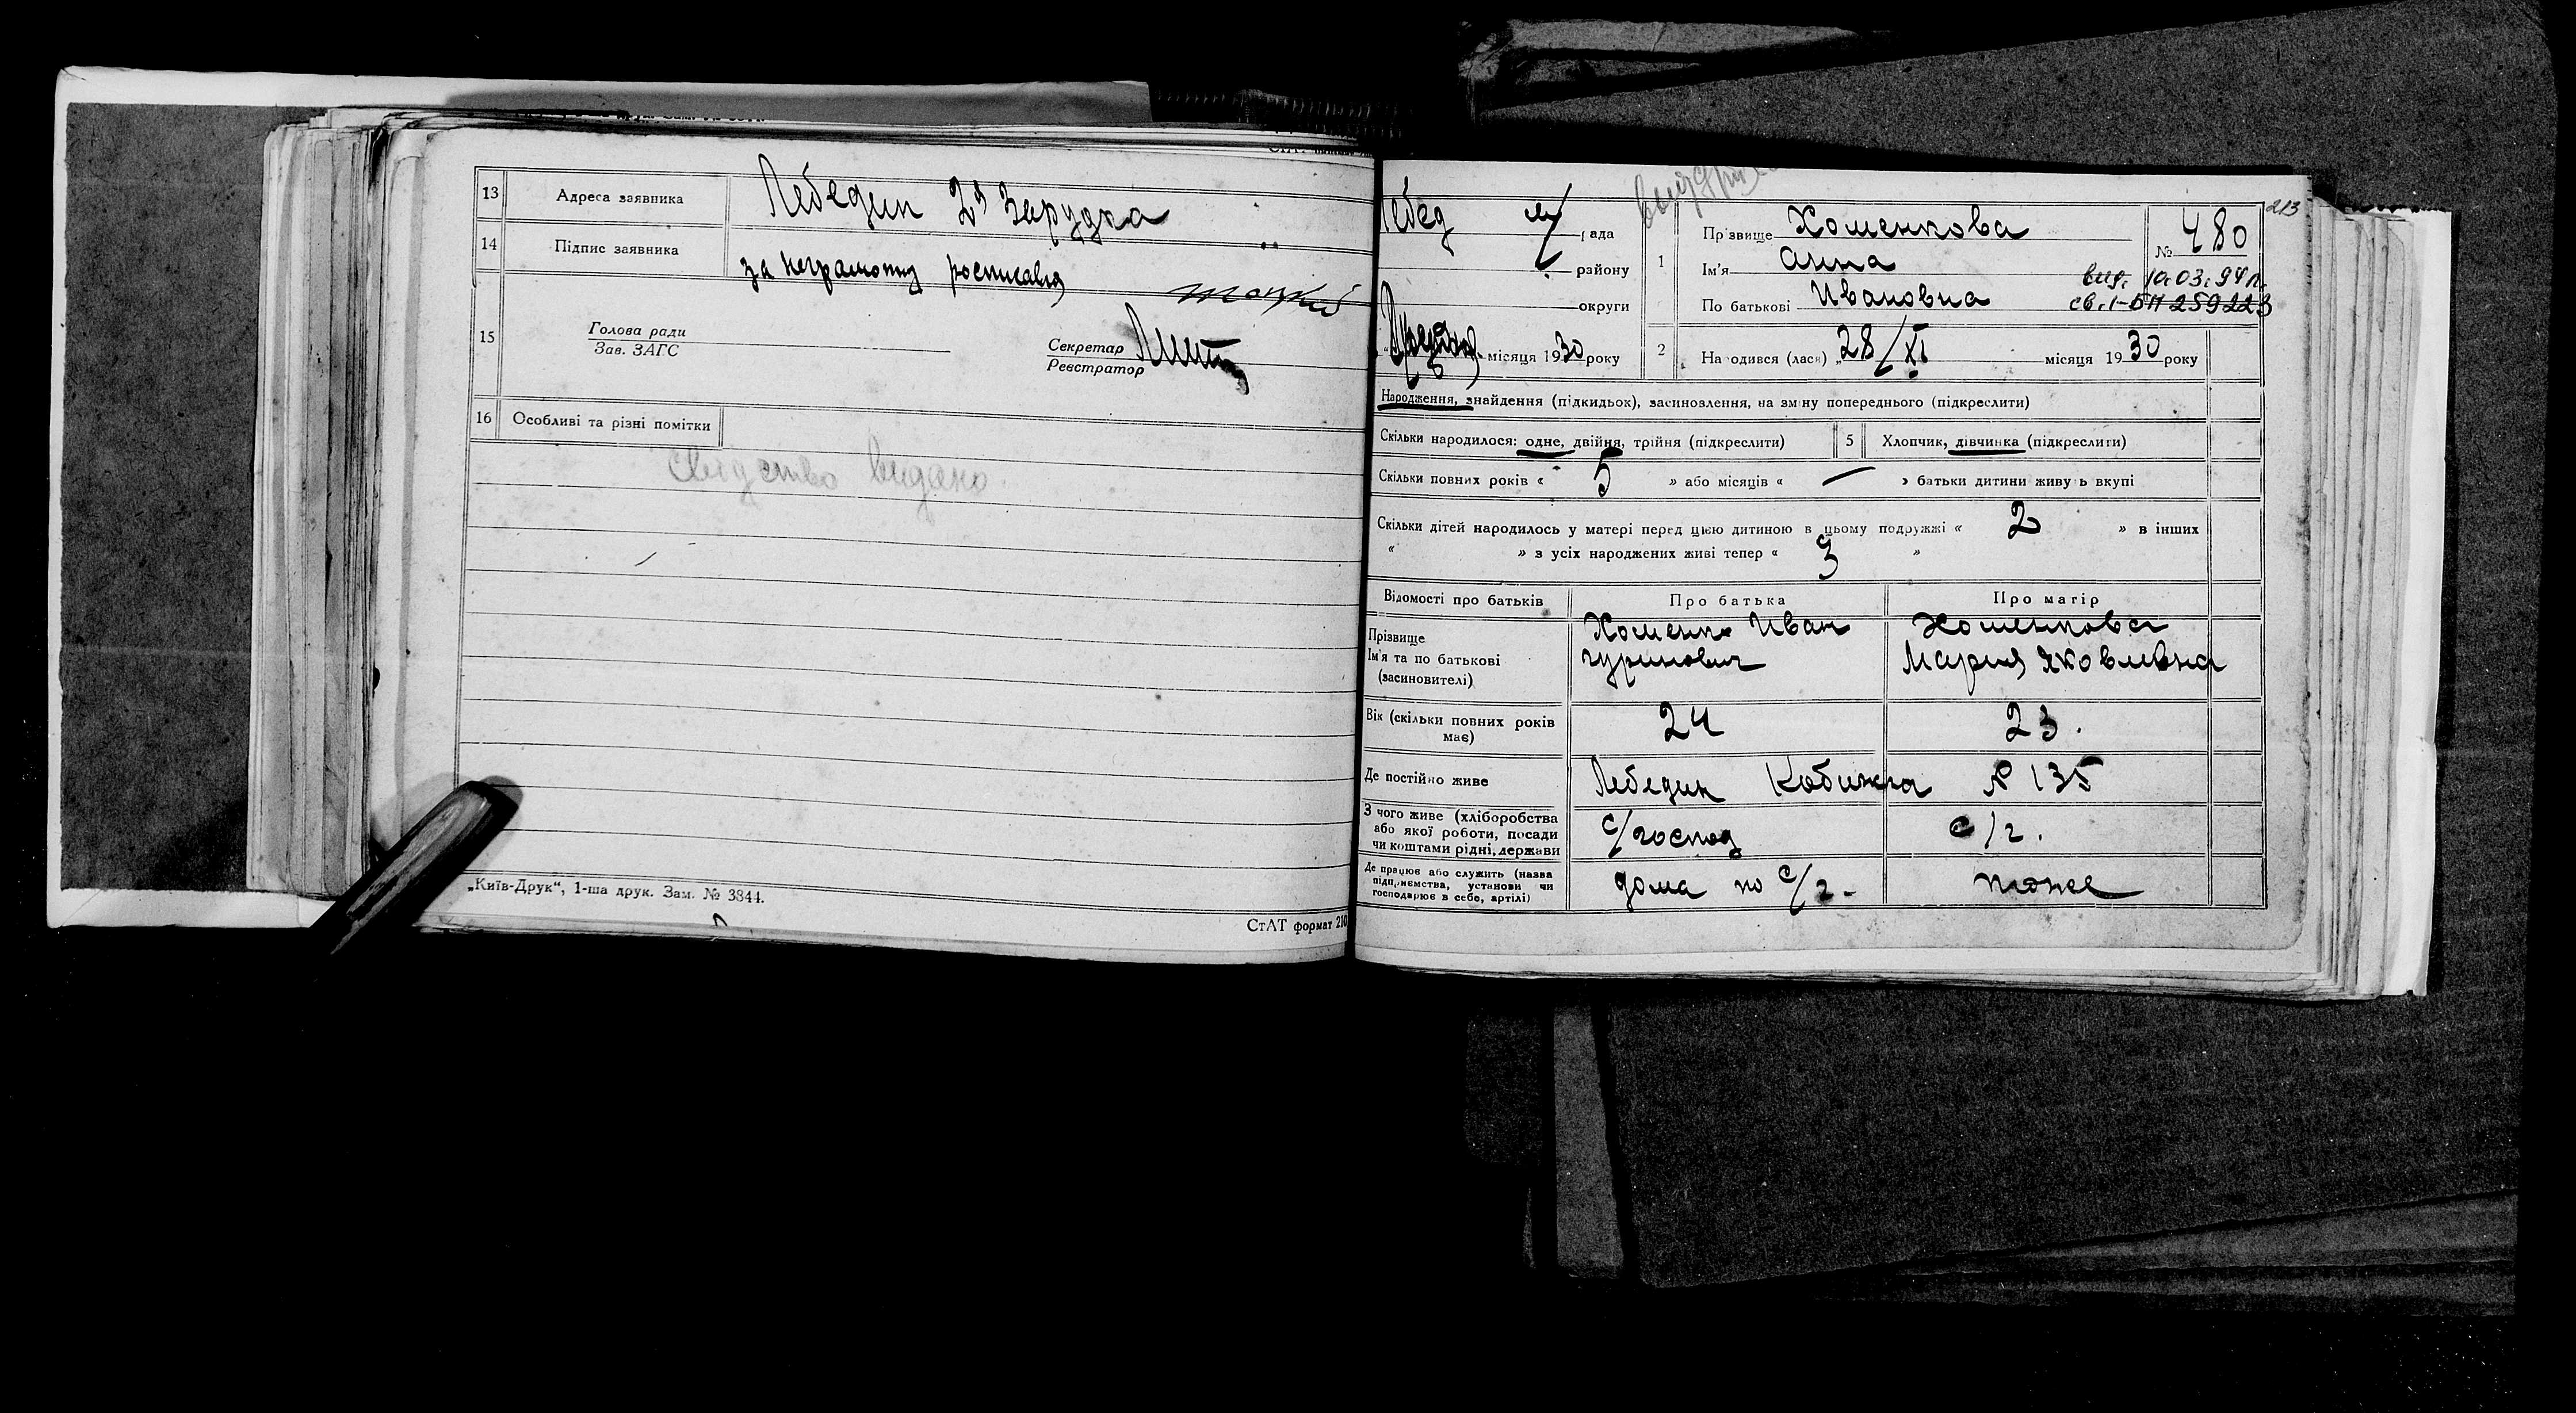 13 Адреса заявника Лебедин 2я Зарудка
14 Підпис заявника за неграмотну росписався
15 Голова ради
Зав. ЗАГС
Секретар
Реєстратор
16 Особливі та різні помітки
Свидство видано
„Київ-Друк“, 1-ша друк. Зам. № 3844.
СтАТ формат 210
213
Лебед м/рада
району
округи
місяця 1930 року
1 Прізвище Хоменкова
№ 480
Ім'я Анна
вид. 10.03.94 р.
По батькові Ивановна
св. I-БП 259223
2 Народився (лася) „28/XI місяця 1930 року
Народження, знайдення (підкидьок), засиновлення, на зміну попереднього (підкреслити)
Скільки народилося: одне, двійня, трійня (підкреслити) 5 Хлопчик, дівчинка (підкреслити)
Скільки повних років « 5 » або місяців « — » батьки дитини живуть вкупі
Скільки дітей народилось у матері перед цією дитиною в цьому подружжі « 2 » в інших
« » з усіх народжених живі тепер « 3 »
Відомості про батьків Про батька Про матір
Прізвище Хоменко Иван Хоменкова
Ім'я та по батькові гуринович Мария Яковлевна
(засиновителі)
Вік (скільки повних років має) 24 23.
Де постійно живе Лебедин Кобижча № 135
З чого живе (хліборобства
або якої роботи, посади
чи коштами рідні, держави
с/господ с/г.
Де працює або служить (назва
підприємства, установи чи
господарює в себе, артілі)
дома по с/г - тоже